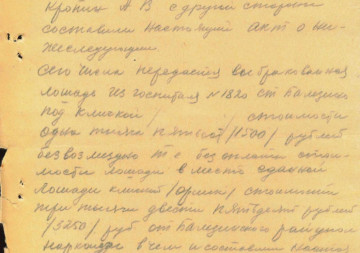 Кропин А В с другой стороны
составили настоящий акт о ни-
жеследующем.
Сего числа передается выбракованная
лошадь из госпиталя №1820 от Балезино
под кличкой / / стоимости
одна тысяча пятьсот /1500/ рублей
безвозмездно т е без оплаты стои-
мости лошади в место сданной
лошади кличкой / / стоимости
три тысячи двести пятьдесят рублей
/3250/ руб от Балезинского
в чем и составили настоя